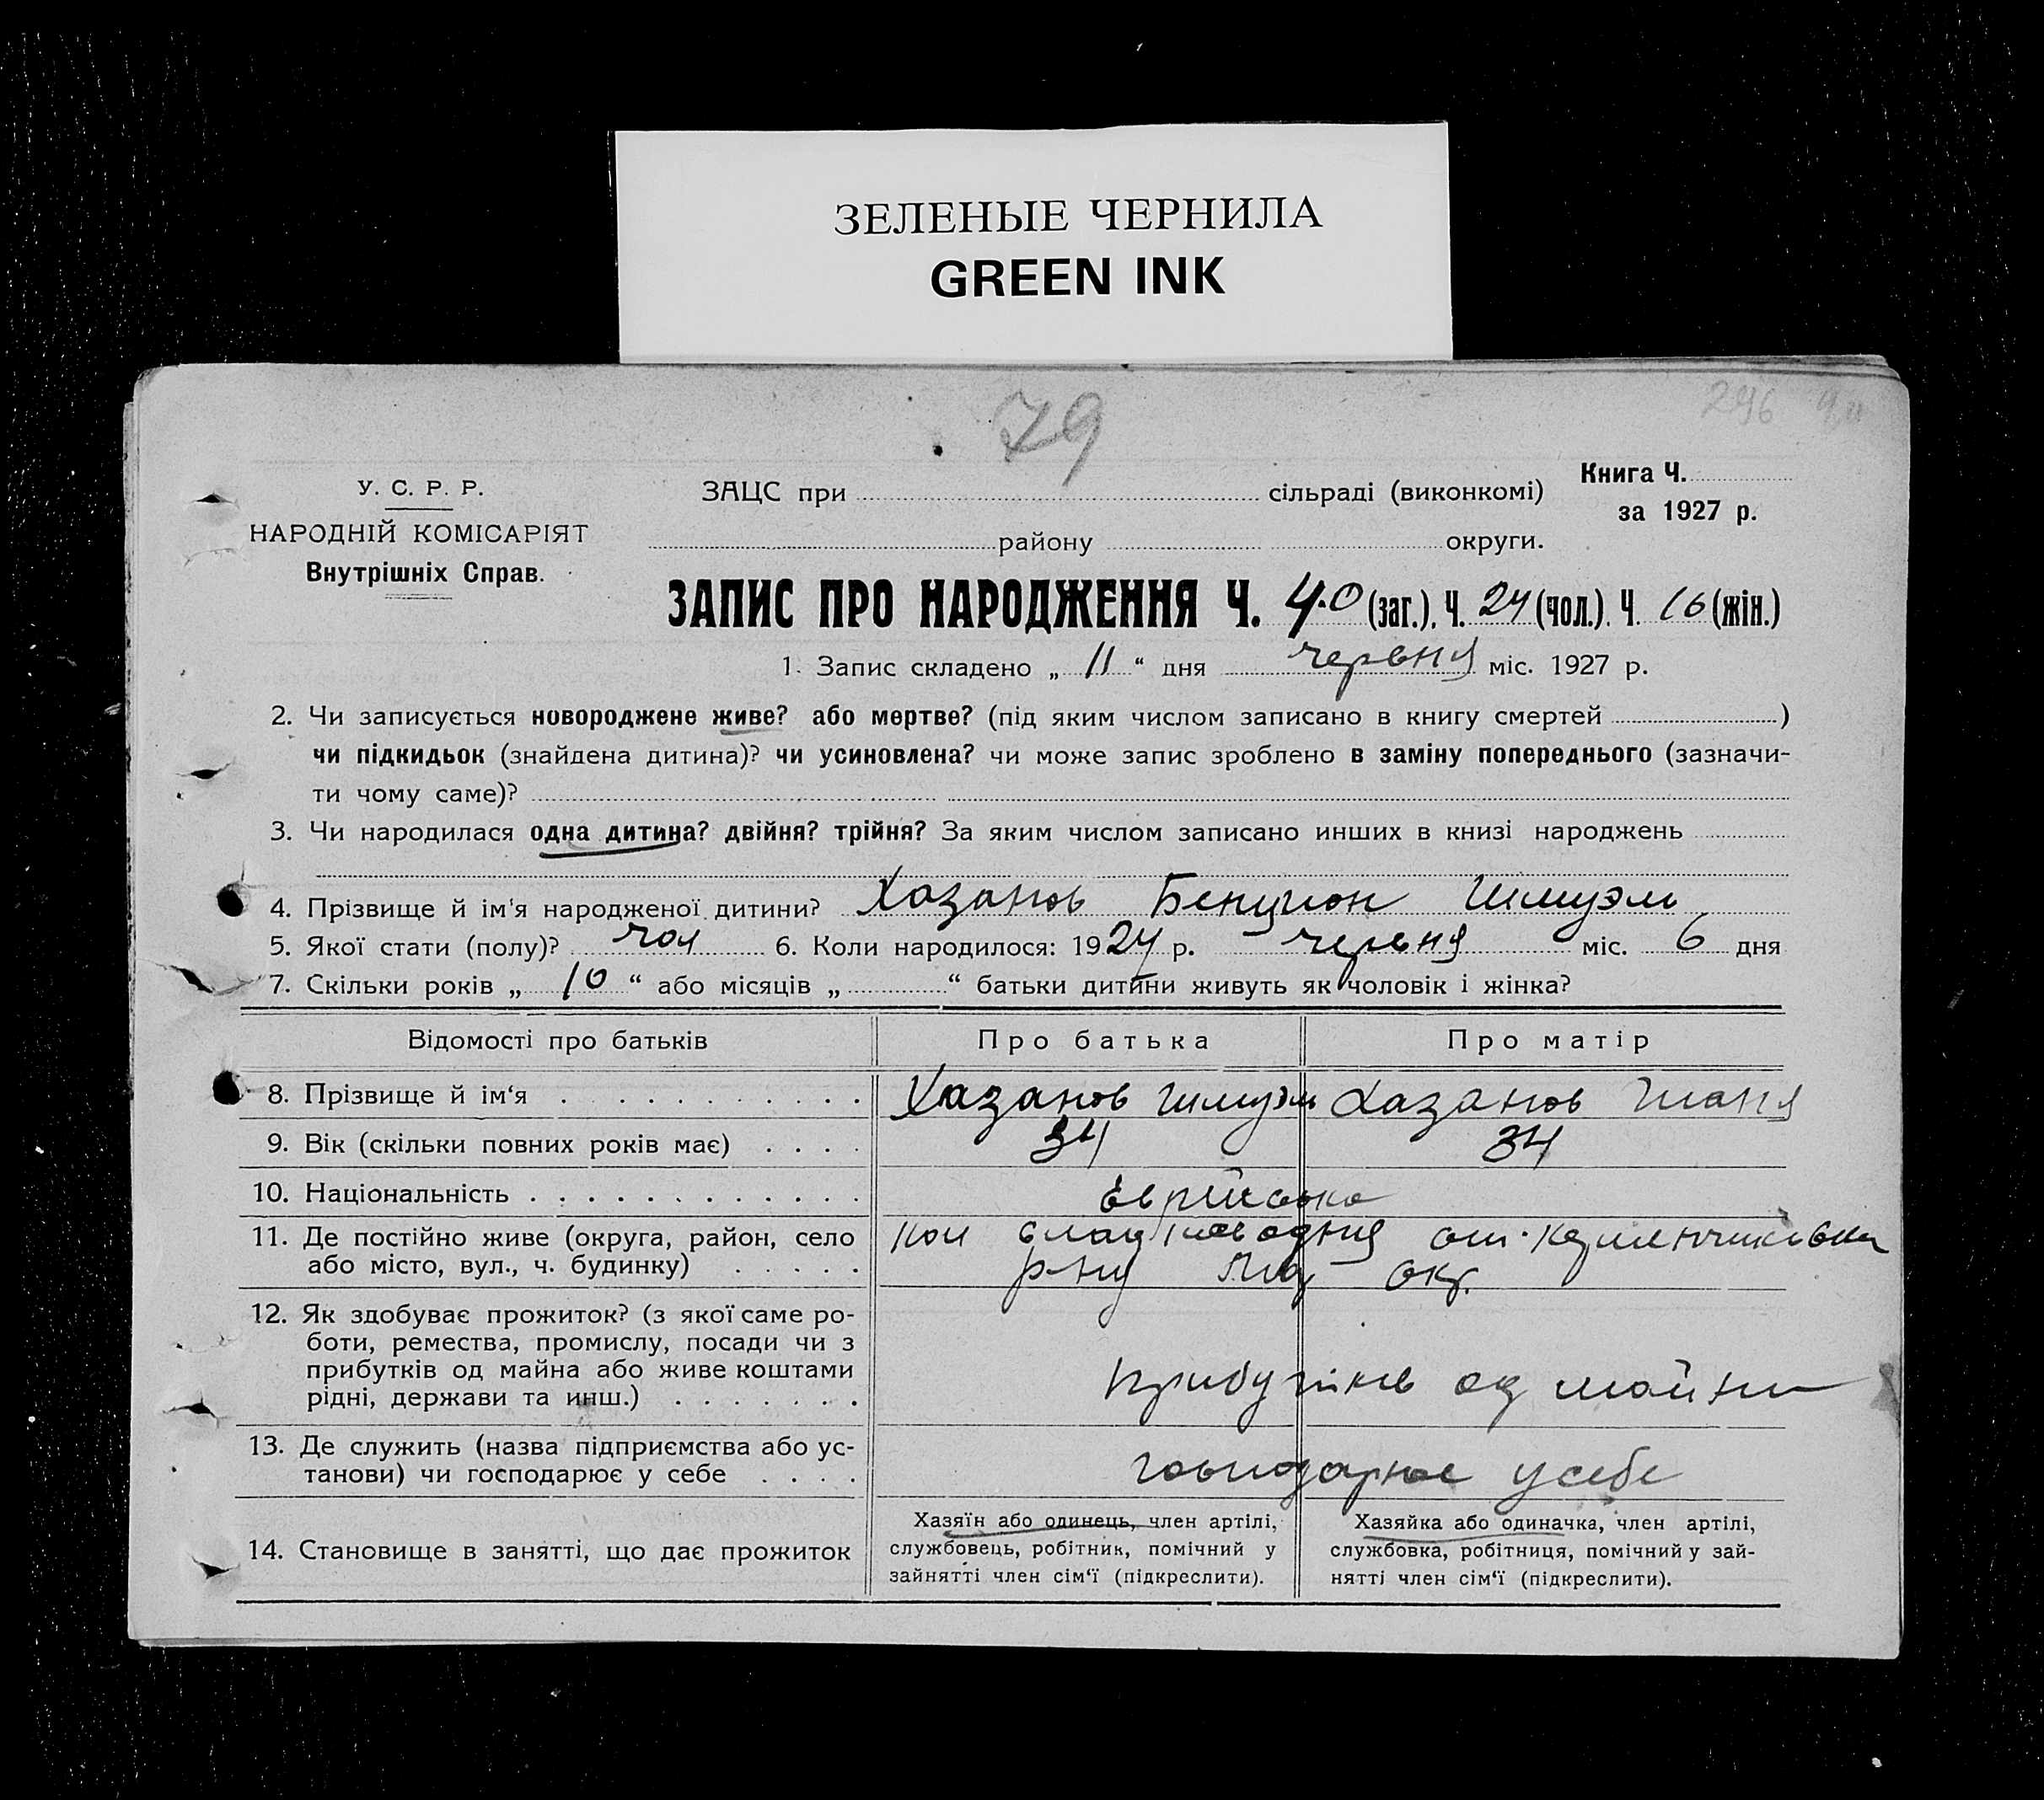 ЗЕЛЕНЫЕ ЧЕРНИЛА
GREEN INK
79
296
У. С. Р. Р.
НАРОДНІЙ КОМІСАРІЯТ
Внутрішніх Справ.
ЗАЦС при сільраді (виконкомі)
Книга Ч.
за 1927 р.
району округи.
ЗАПИС ПРО НАРОДЖЕННЯ Ч. 40 (заг.). Ч. 24 (чол.). Ч. 16 (жін.)
1. Запис складено „ 11 “ дня червня міс. 1927 р.
2. Чи записується новороджене живе? або мертве? (під яким числом записано в книгу смертей )
чи підкидьок (знайдена дитина)? чи усиновлена? чи може запис зроблено в заміну попереднього (зазначи-
ти чому саме)?
3. Чи народилася одна дитина? двійня? трійня? За яким числом записано инших в книзі народжень
4. Прізвище й ім'я народженої дитини? Хазанов Бенцион Шмуэль
5. Якої стати (полу)? чол 6. Коли народилося: 1927 р. червня міс. 6 дня
7. Скільки років „ 10 “ або місяців „ “ батьки дитини живуть як чоловік і жінка?
Відомості про батьків Про батька Про матір
8. Прізвище й ім‘я Хазанов Шмуэль Хазанов Шаня
9. Вік (скільки повних років має) 34 34
10. Національність Єврійська
11. Де постійно живе (округа, район, село
або місто, вул., ч. будинку)
р-ну окр.
12. Як здобуває прожиток? (з якої саме ро-
боти, ремества, промислу, посади чи з
прибутків од майна або живе коштами
рідні, держави та инш.)
прибутків од майни
13. Де служить (назва підприємства або ус-
танови) чи господарює у себе
господарює у себе
14. Становище в занятті, що дає прожиток
Хазяїн або одинець, член артілі,
службовець, робітник, помічний у
зайнятті член сім‘ї (підкреслити).
Хазяйка або одиначка, член артілі,
службовка, робітниця, помічний у зай-
нятті член сім‘ї (підкреслити).